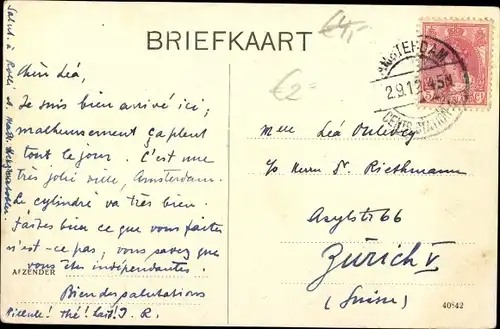 BRIEFKAART
€4,-
€2=
AMSTERDAM
2.9.12 4-5N
CENTR. STATION
Chère Léa,
Je suis bien arrivé ici,
malheureusement ça pleut
tout le jour. C'est une
très jolie ville, Amsterdam.
Le cylindre va très bien.
Faites bien ce que vous faites
n'est-ce pas, vous savez que
vous êtes indépendantes.
AFZENDER
Bien des salutations
Thé! Lait! J. R.
Salut à
Mlle Léa
c/o Herrn Dr. Riethmann
Asylstr 66
Zürich V
(Suisse)
40542